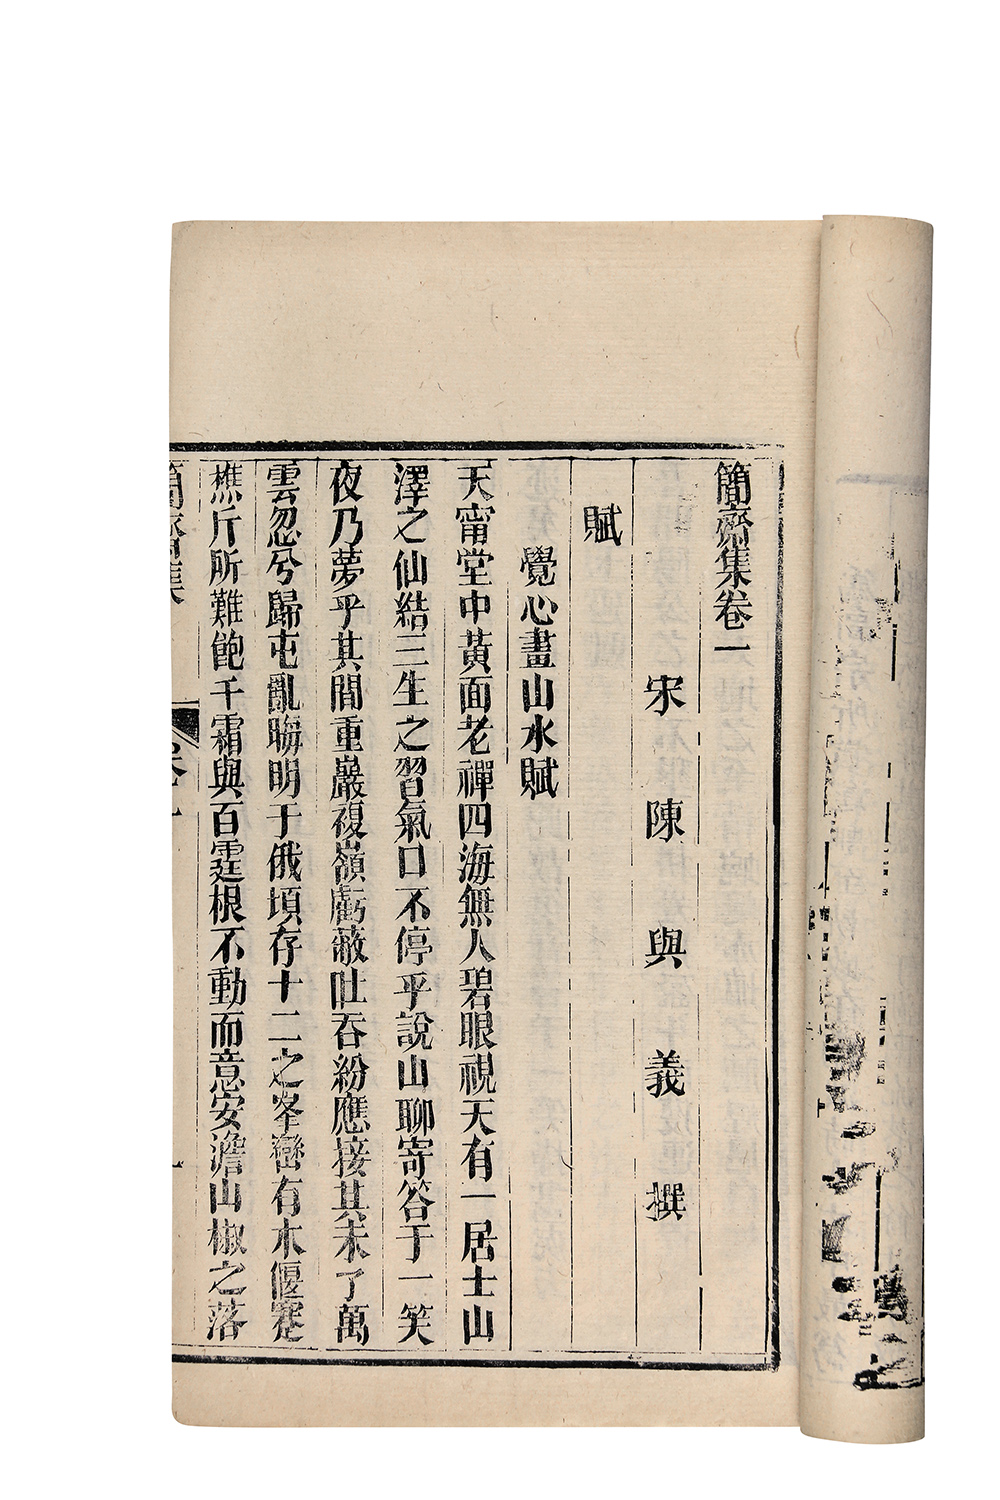 簡齋集卷一
宋陳與義撰
賦
覺心畫山水賦
天甯堂中黃面老禪四海無人碧眼視天有一居士山
澤之仙結三生之習氣口不停乎說山聊寄答于一笑
夜乃夢乎其間重巖複嶺虧蔽吐吞紛應接其未了萬
雲忽兮歸屯亂晦明于俄頃存十二之峯巒有木偃蹇
樵斤所難飽千霜與百霆根不動而意安澹山椒之落
簡齋集
卷一